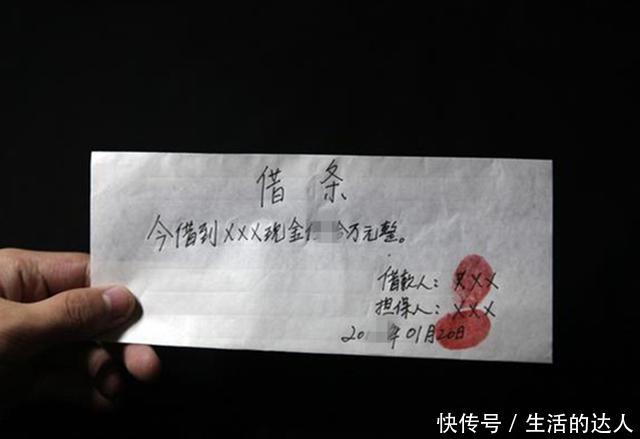 借条
今借到XXX现金 万元整。
借款人：XXX
担保人：XXX
20 年01月20日
快传号 / 生活的达人